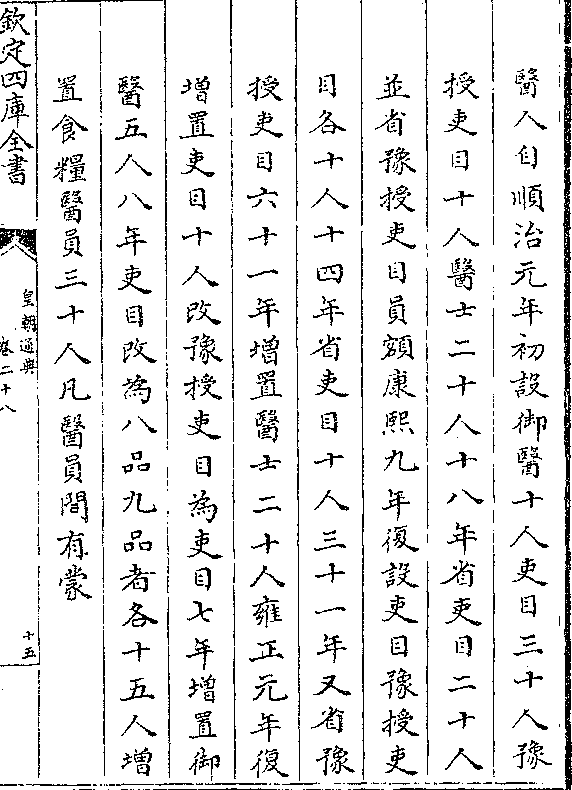 醫人自順治元年初設御醫十人吏目三十人豫
授吏目十人醫士二十人十八年省吏目二十人
並省豫授吏目員額康熙九年復設吏目豫授吏
目各十人十四年省吏目十人三十一年又省豫
授吏目六十一年增置醫士二十人雍正元年復
增置吏目十人改豫授吏目為吏目七年增置御
醫五人八年吏目改為八品九品者各十五人增
置食糧醫員三十人凡醫員間有蒙
欽定四庫全書
皇朝通典
卷二十八
十五